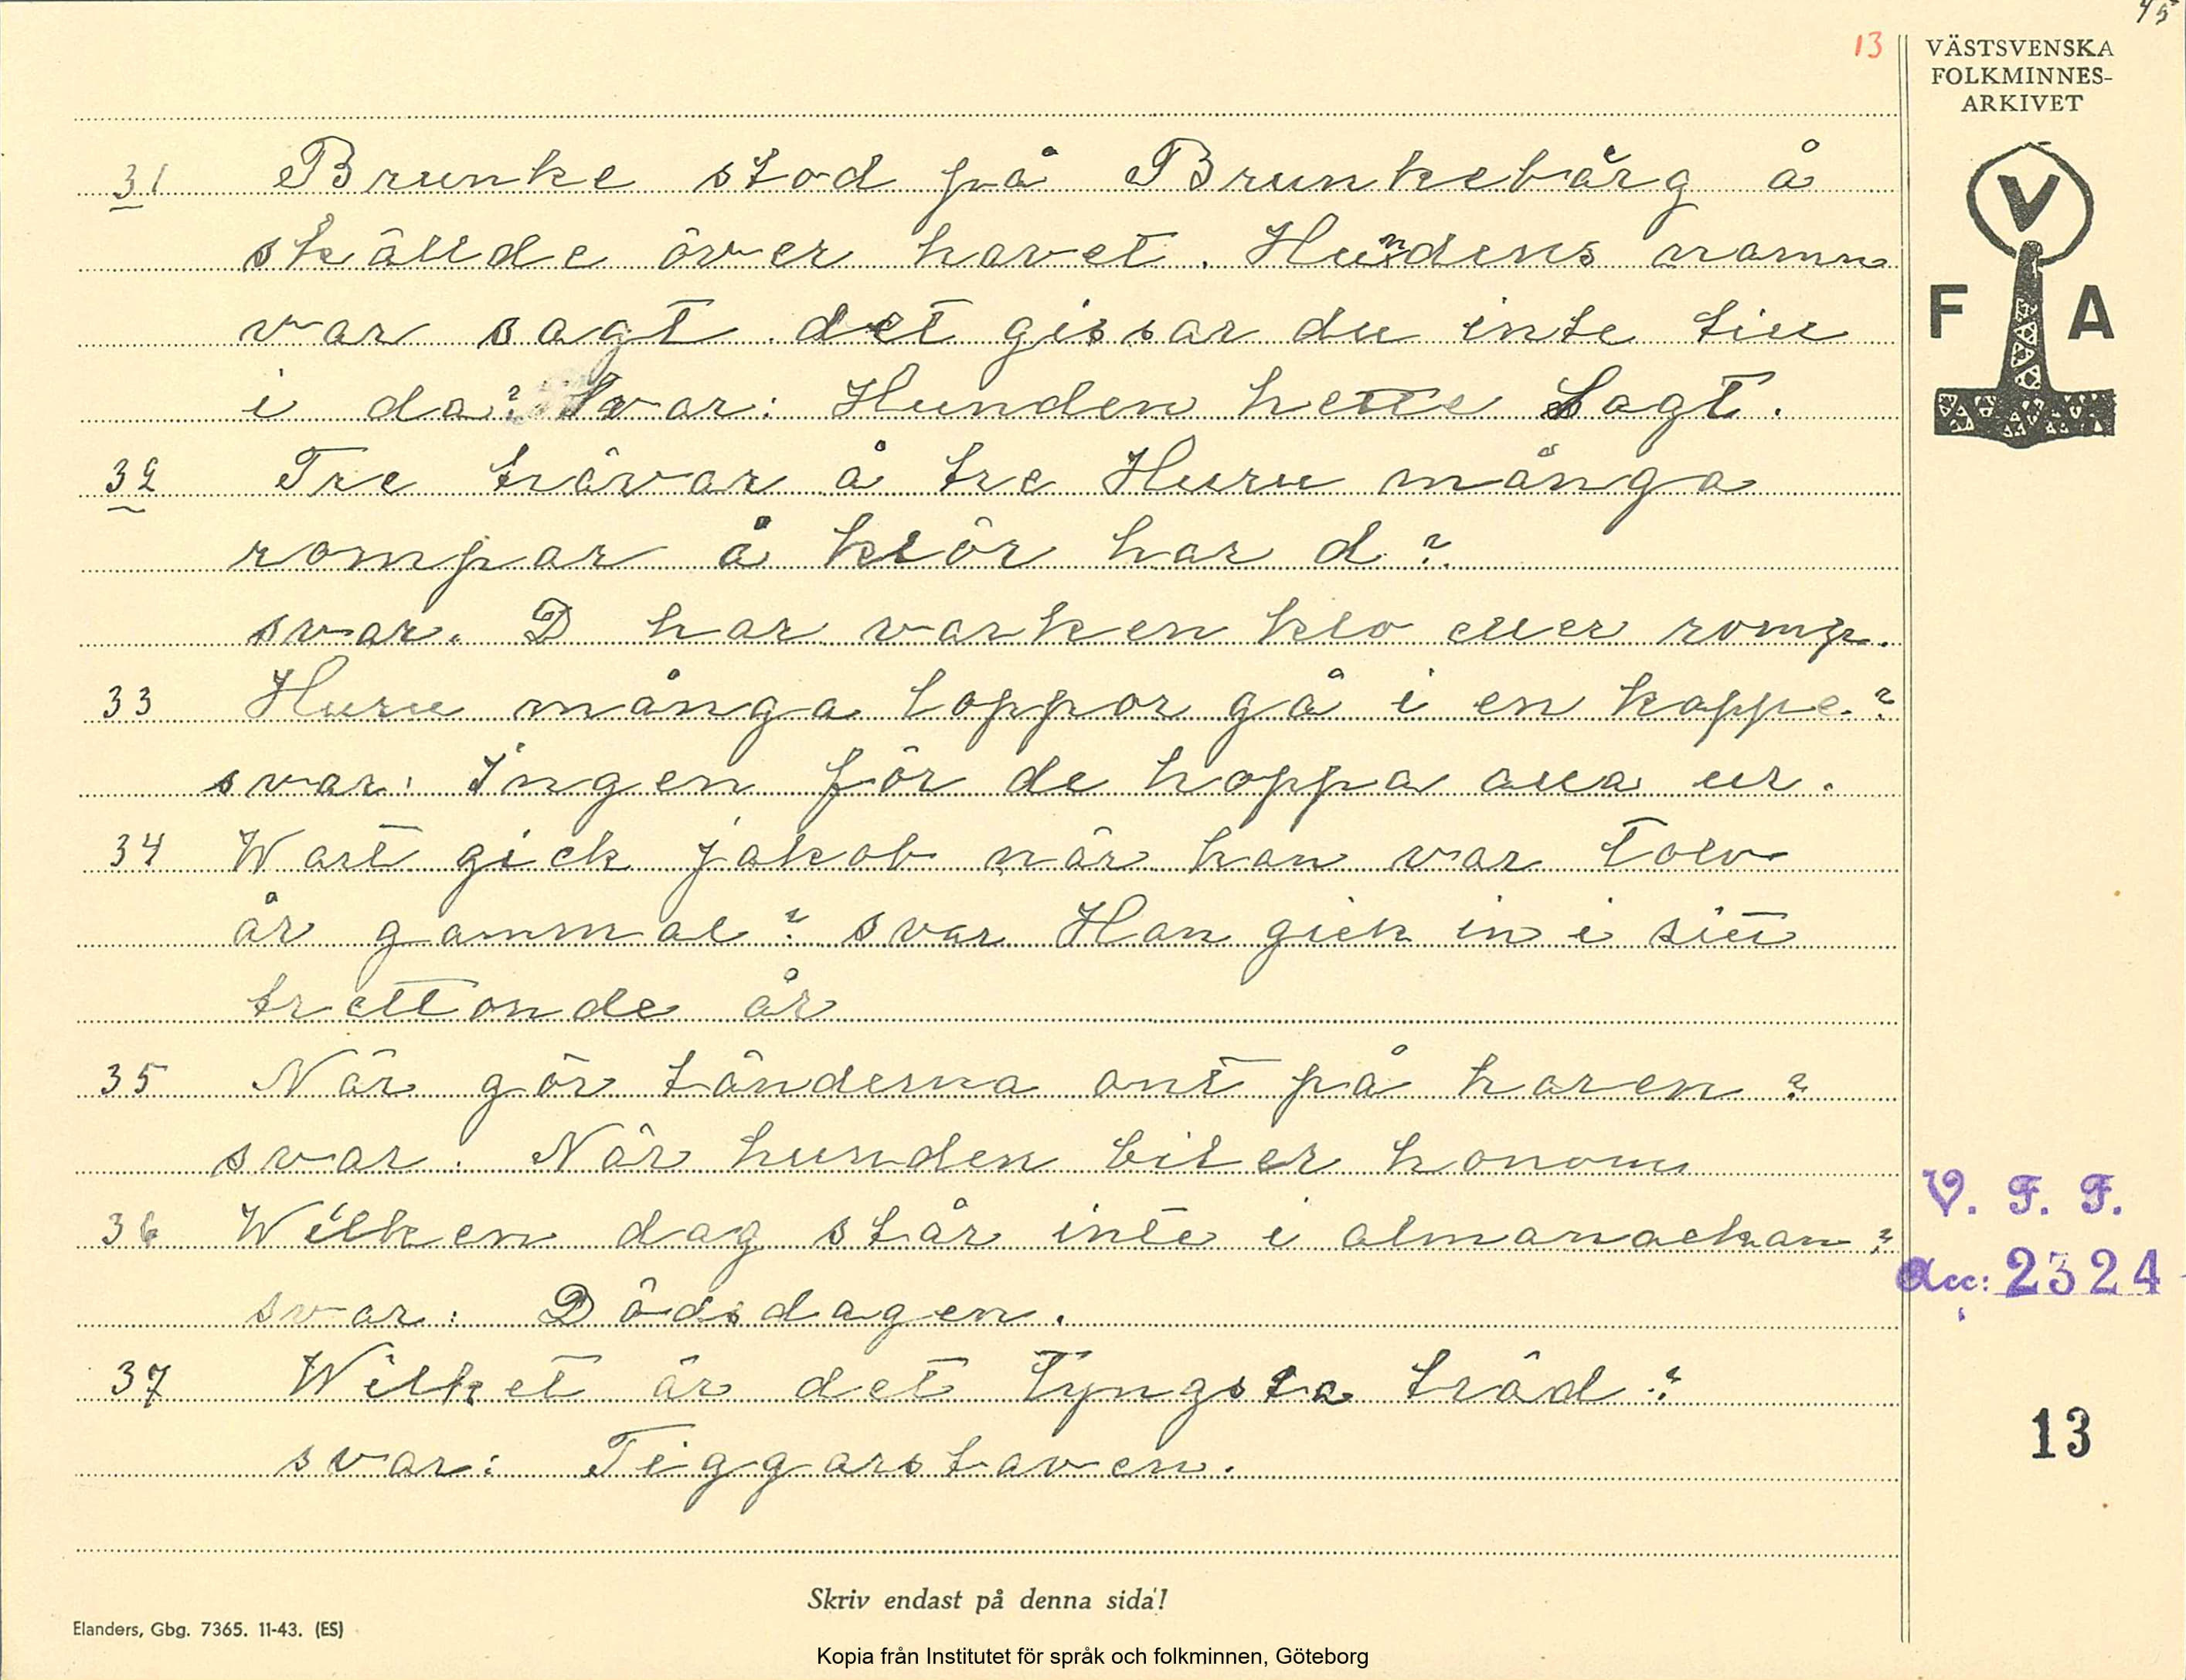 45
13
VÄSTSVENSKA
FOLKMINNES-
ARKIVET
V
F A
31 Brunke stod på Brunkebårg å
skällde över havet. Hundens namn
var sagt det gissar du inte till
i da? Svar: Hunden hette Sagt.
32 Tre trävar å tre Huru många
rompar å klör har d?
svar. D har varken klo eller romp.
33 Huru många loppor gå i en kappe?
svar: Ingen för de hoppa alla ur.
34 Wart gick jakob når han var tolv
år gammal? svar Han gick in i sitt
trettonde år
35 När gör tänderna ont på haren?
svar. När hunden biter honom
36 Wilken dag står inte i almanackan?
svar: Dödsdagen.
37 Wilket är det tyngsta träd?
svar: Tiggarstaven.
V. F. F.
Acc: 2324
13
Skriv endast på denna sida!
Elanders, Gbg. 7365. 11-43. (ES)
Kopia från Institutet för språk och folkminnen, Göteborg